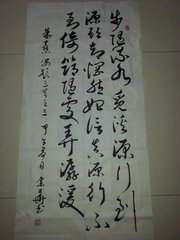 步随流水觅溪源行到
源头却惘然始信真源行不
到倚筇随处弄潺湲
朱熹偶题三首之三 甲午春月